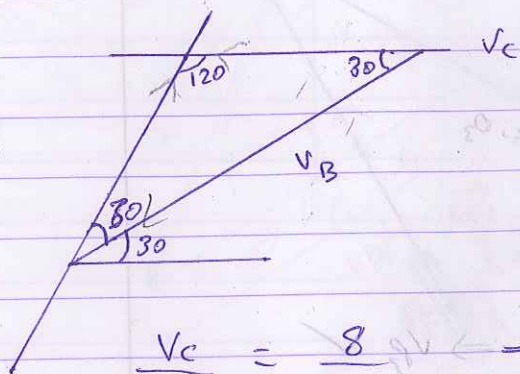 V_C
120
30
V_B
30
30
V_C = 8 =